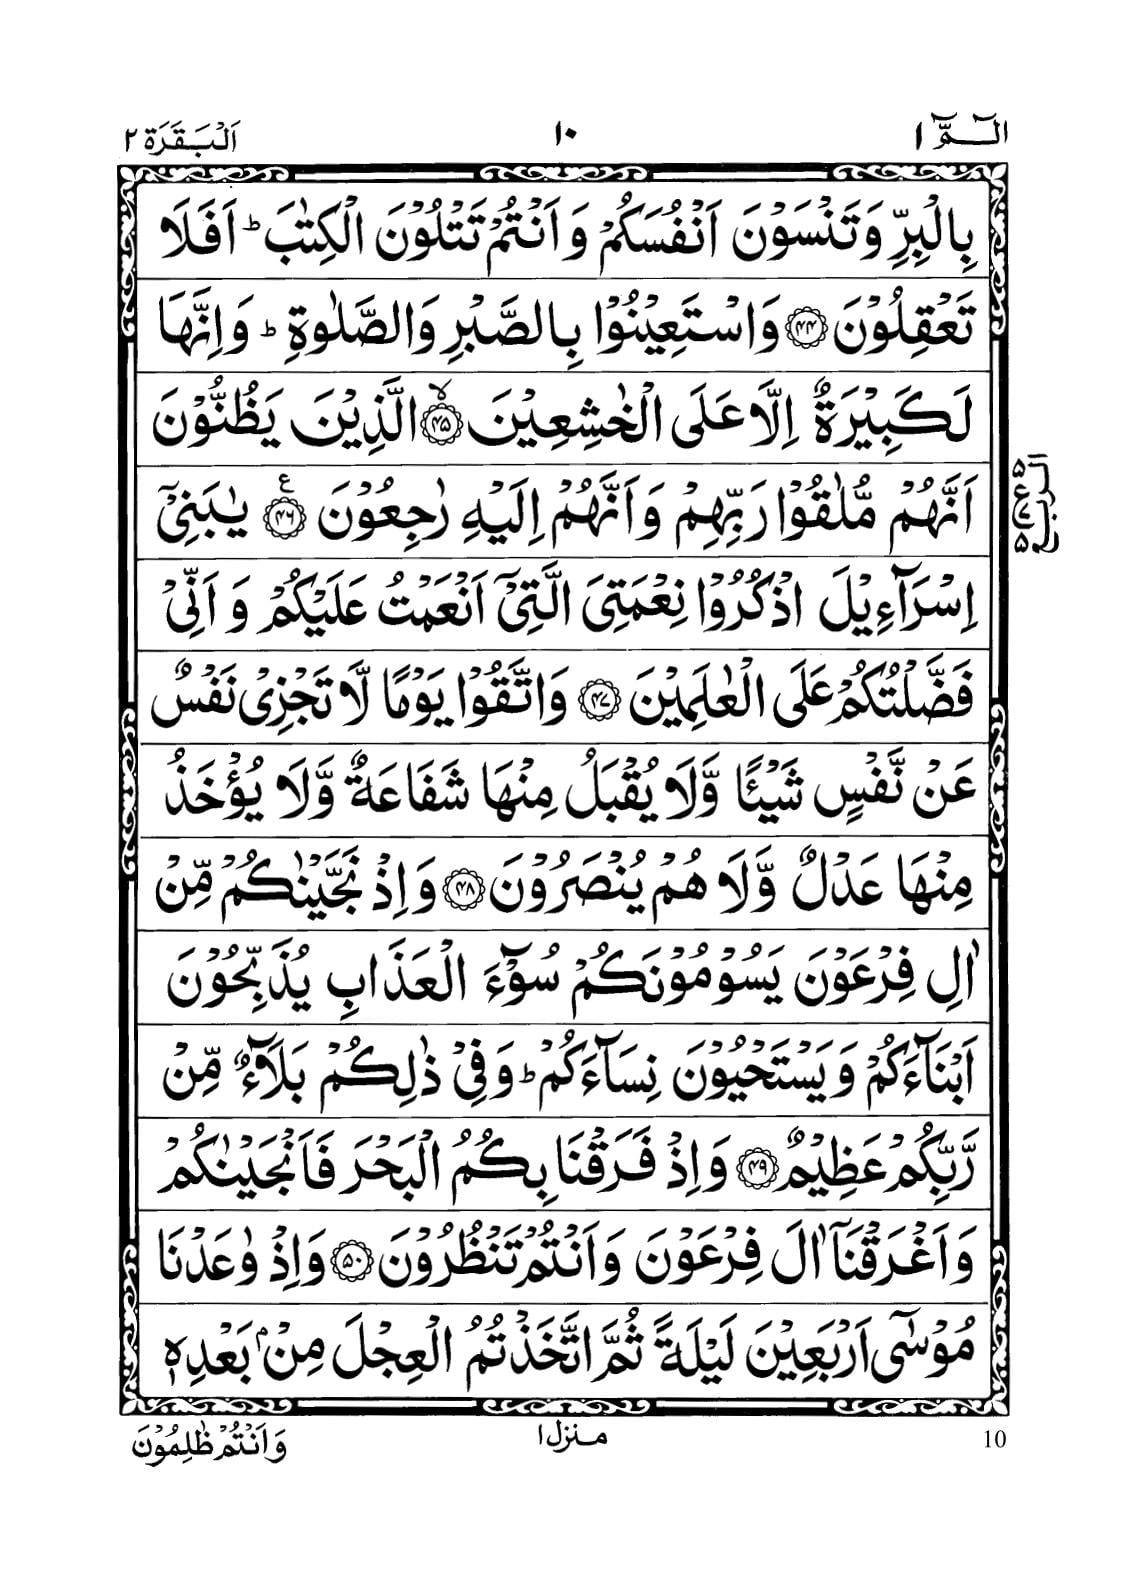 الٓمّٓ ۱ ۱۰ اَلْبَقَرَة ۲
بِالْبِرِّ وَتَنْسَوْنَ اَنْفُسَكُمْ وَاَنْتُمْ تَتْلُوْنَ الْكِتٰبَ ؕ اَفَلَا
تَعْقِلُوْنَ ﴿۴۴﴾ وَاسْتَعِيْنُوْا بِالصَّبْرِ وَالصَّلٰوةِ ؕ وَاِنَّهَا
لَكَبِيْرَةٌ اِلَّا عَلَى الْخٰشِعِيْنَ ﴿ۙ۴۵﴾ الَّذِيْنَ يَظُنُّوْنَ
اَنَّهُمْ مُّلٰقُوْا رَبِّهِمْ وَاَنَّهُمْ اِلَيْهِ رٰجِعُوْنَ ﴿۴۶﴾ ع يٰبَنِيْٓ
اِسْرَآءِيْلَ اذْكُرُوْا نِعْمَتِيَ الَّتِيْٓ اَنْعَمْتُ عَلَيْكُمْ وَاَنِّيْ
فَضَّلْتُكُمْ عَلَى الْعٰلَمِيْنَ ﴿۴۷﴾ وَاتَّقُوْا يَوْمًا لَّا تَجْزِيْ نَفْسٌ
عَنْ نَّفْسٍ شَيْئًا وَّلَا يُقْبَلُ مِنْهَا شَفَاعَةٌ وَّلَا يُؤْخَذُ
مِنْهَا عَدْلٌ وَّلَا هُمْ يُنْصَرُوْنَ ﴿۴۸﴾ وَاِذْ نَجَّيْنٰكُمْ مِّنْ
اٰلِ فِرْعَوْنَ يَسُوْمُوْنَكُمْ سُوْٓءَ الْعَذَابِ يُذَبِّحُوْنَ
اَبْنَآءَكُمْ وَيَسْتَحْيُوْنَ نِسَآءَكُمْ ؕ وَفِيْ ذٰلِكُمْ بَلَآءٌ مِّنْ
رَّبِّكُمْ عَظِيْمٌ ﴿۴۹﴾ وَاِذْ فَرَقْنَا بِكُمُ الْبَحْرَ فَاَنْجَيْنٰكُمْ
وَاَغْرَقْنَآ اٰلَ فِرْعَوْنَ وَاَنْتُمْ تَنْظُرُوْنَ ﴿۵۰﴾ وَاِذْ وٰعَدْنَا
مُوْسٰٓى اَرْبَعِيْنَ لَيْلَةً ثُمَّ اتَّخَذْتُمُ الْعِجْلَ مِنْۢ بَعْدِهٖ
10 منزل ۱ وَاَنْتُمْ ظٰلِمُوْنَ